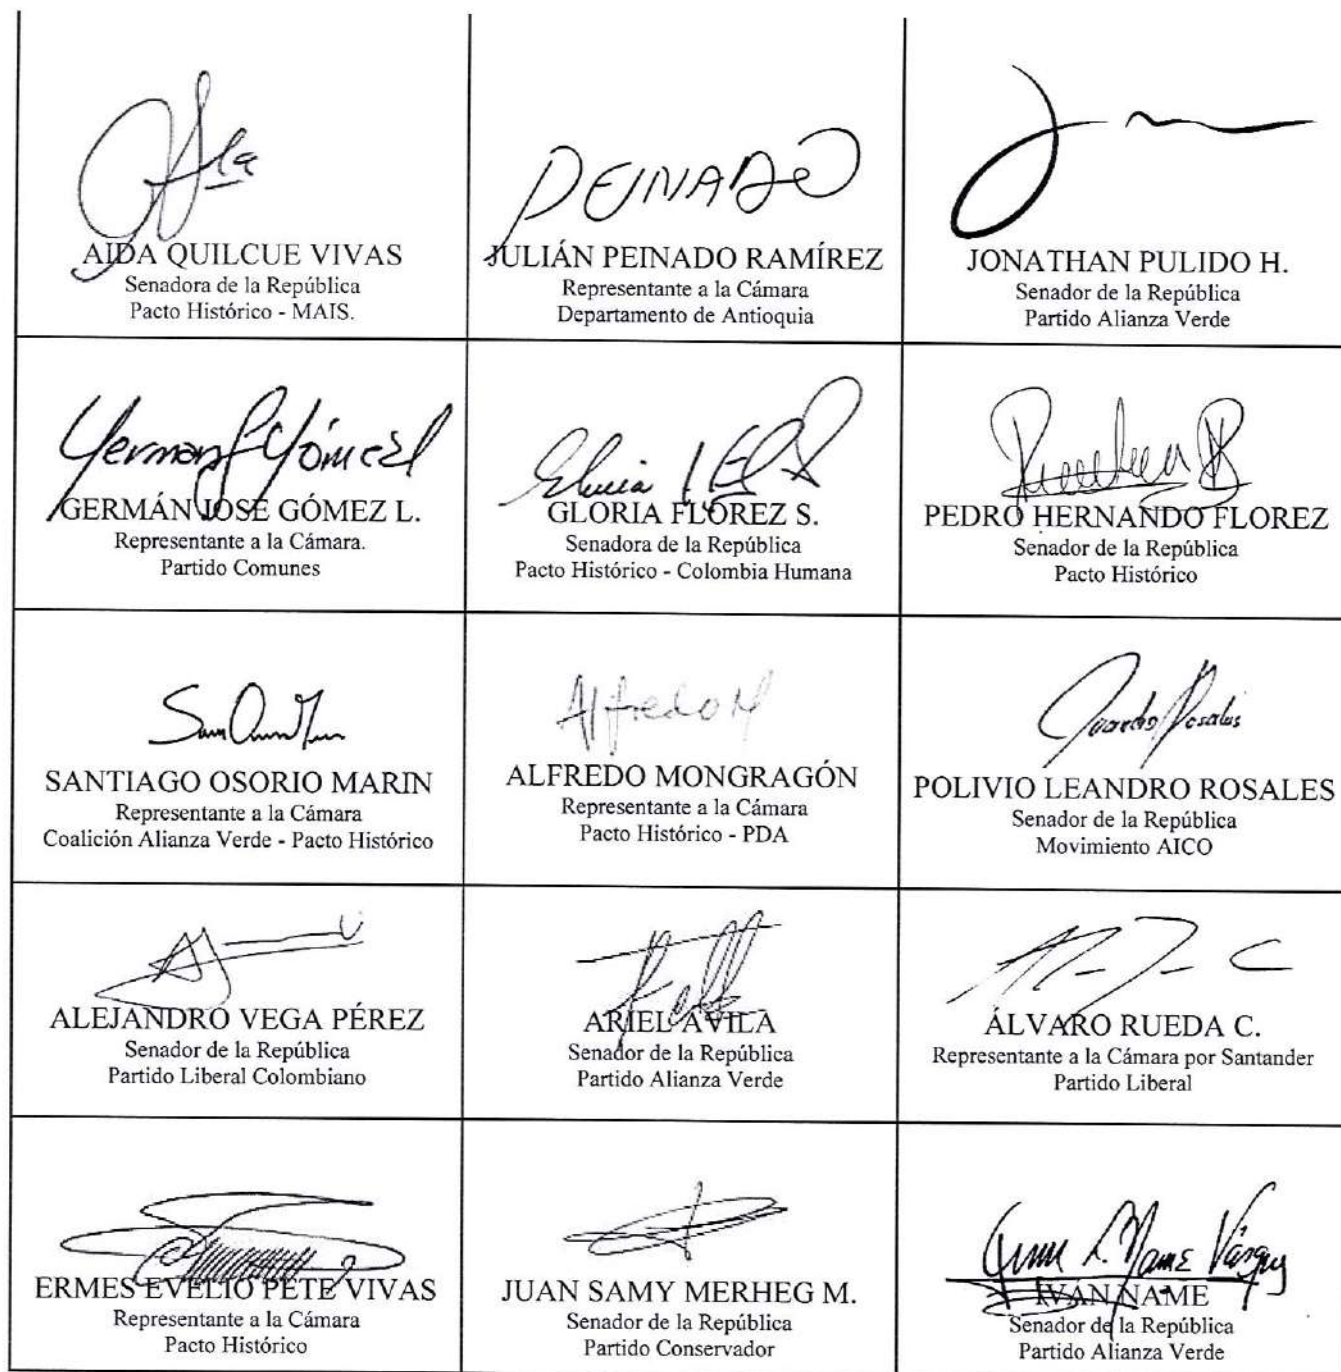 AIDA QUILCUE VIVAS
Senadora de la República
Pacto Histórico - MAIS.
PEINADO
JULIÁN PEINADO RAMÍREZ
Representante a la Cámara
Departamento de Antioquia
JONATHAN PULIDO H.
Senador de la República
Partido Alianza Verde
GERMÁN JOSÉ GÓMEZ L.
Representante a la Cámara.
Partido Comunes
GLORIA FLÓREZ S.
Senadora de la República
Pacto Histórico - Colombia Humana
PEDRO HERNANDO FLOREZ
Senador de la República
Pacto Histórico
SANTIAGO OSORIO MARIN
Representante a la Cámara
Coalición Alianza Verde - Pacto Histórico
Alfredo M
ALFREDO MONGRAGÓN
Representante a la Cámara
Pacto Histórico - PDA
POLIVIO LEANDRO ROSALES
Senador de la República
Movimiento AICO
ALEJANDRO VEGA PÉREZ
Senador de la República
Partido Liberal Colombiano
ARIEL AVILA
Senador de la República
Partido Alianza Verde
ÁLVARO RUEDA C.
Representante a la Cámara por Santander
Partido Liberal
ERMES EVELIO PETE VIVAS
Representante a la Cámara
Pacto Histórico
JUAN SAMY MERHEG M.
Senador de la República
Partido Conservador
Name Vásquez
IVÁN NAME
Senador de la República
Partido Alianza Verde